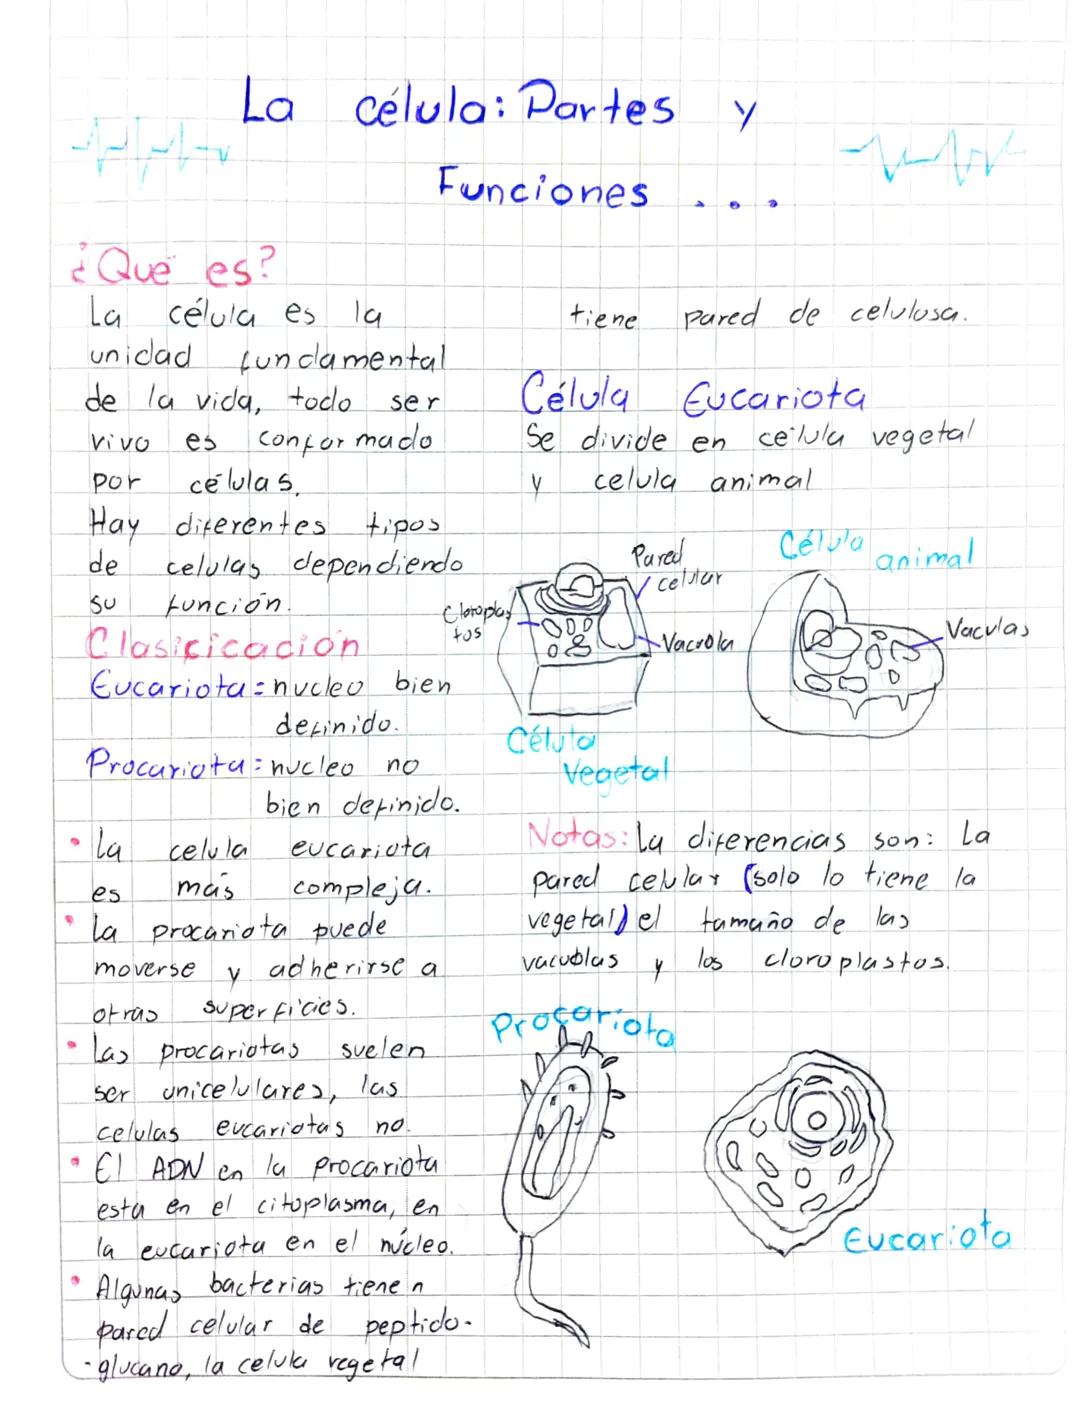 La célula: Partes y
Funciones ...
¿Que es?
La célula es la
unidad fundamental
de la vida, todo ser
vivo es conformado
por células.
Hay diferentes tipos
de celulas dependiendo
su función.
Clasificación
Eucariota = nucleo bien
definido.
Procariota = nucleo no
bien definido.
• La celula eucariota
es más compleja.
• La procariota puede
moverse y adherirse a
otras superficies.
• Las procariotas suelen
ser unicelulares, las
celulas eucariotas no.
• El ADN en la procariota
esta en el citoplasma, en
la eucariota en el núcleo.
• Algunas bacterias tienen
pared celular de peptido-
-glucano, la celula vegetal
tiene pared de celulosa.
Célula Eucariota
Se divide en célula vegetal
y celula animal
Pared
celular
Cloroplas
tos
Vacuola
Célula
Vegetal
Célula animal
Vaculas
Notas: La diferencias son: La
pared celular (solo lo tiene la
vegetal) el tamaño de las
vacuolas y los cloroplastos.
Procariota
Eucariota